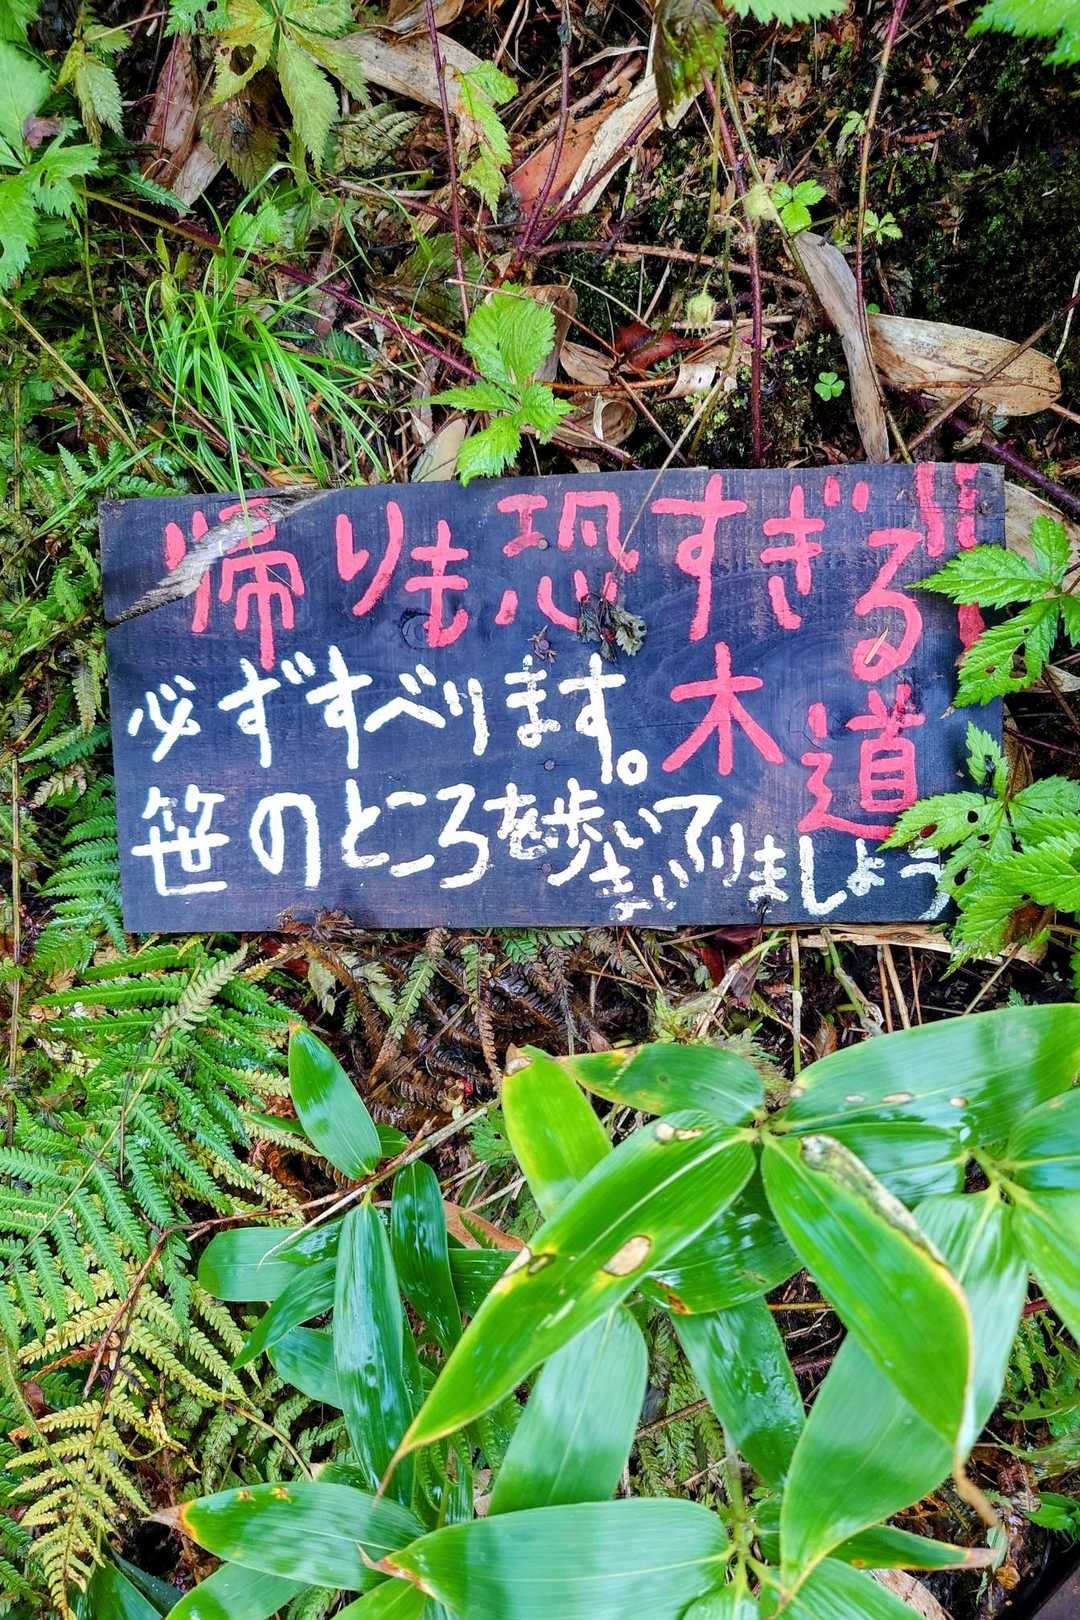 帰りも恐すぎる!!
木道
必ずすべります。
笹のところを歩いて
まいりましょう